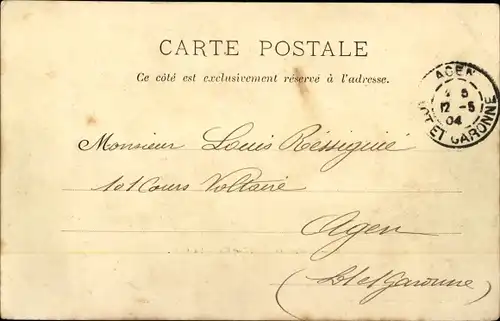 CARTE POSTALE
Ce côté est exclusivement réservé à l'adresse.
AGEN
12 -5
04
LOT ET GARONNE
Monsieur Louis Rességuié
101 Cours Voltaire
Agen
(Lot et Garonne)